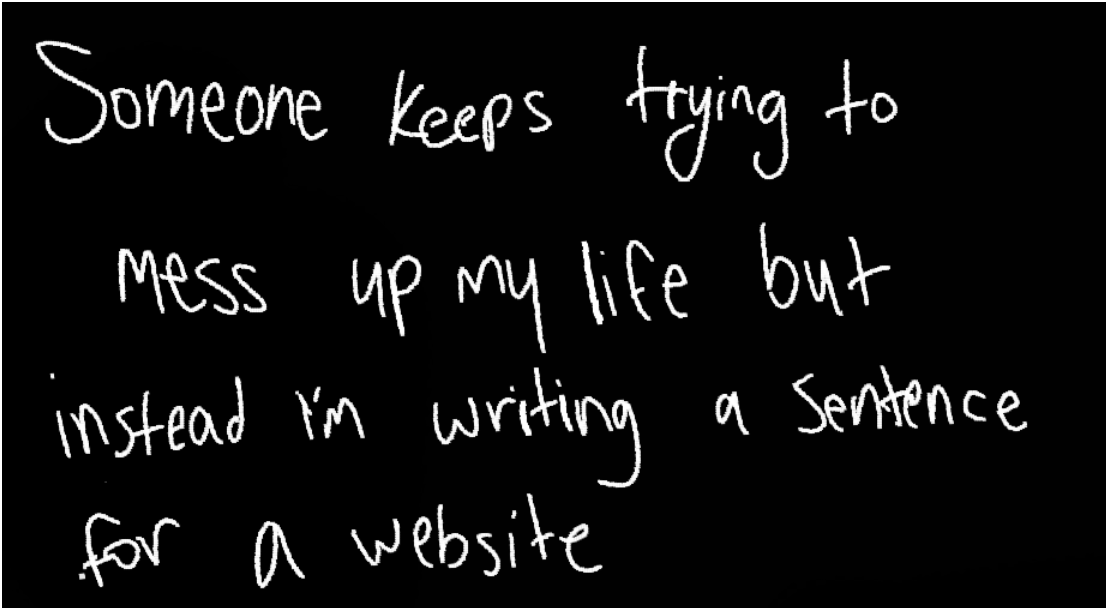 Someone keeps trying to
mess up my life but
instead i'm writing a sentence
for a website